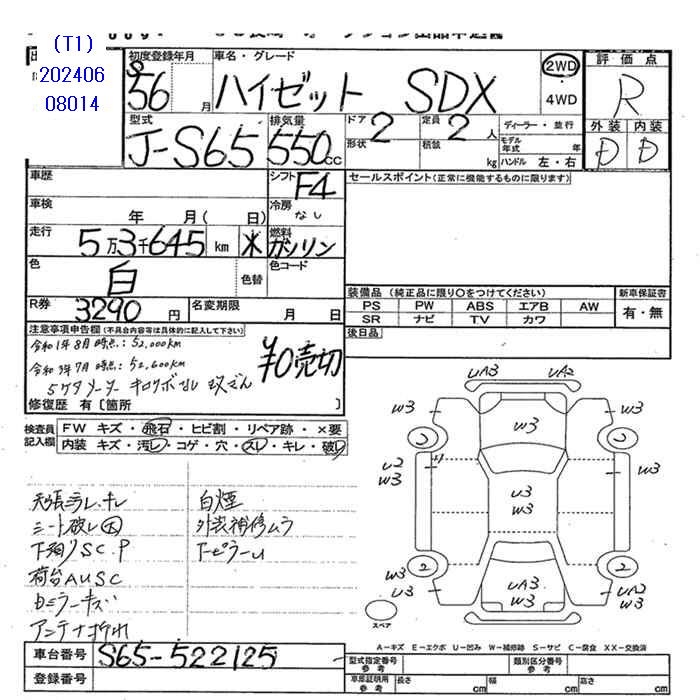 (T1)
202406
08014
初度登録年月
車名・グレード
S56 月
ハイゼット SDX
2WD
・
4WD
評価点
R
外装 内装
D D
型式
J-S65
排気量
550cc
ドア 2
形状
定員 2人
積載 kg
ディーラー・並行
モデル年式 年
ハンドル 左・右
車歴
シフト F4
セールスポイント(正常に機能するものに限ります)
車検
年 月( 日)
冷房
なし
走行
5万3千645km
*
燃料
ガソリン
色
白
色替
色コード
R券
3290円
名変期限
月 日
装備品(純正品に限り○をつけてください)
PS PW ABS エアB AW
SR ナビ TV カワ
新車保証書
有・無
後日品
注意事項申告欄(不具合内容等は具体的に記入して下さい)
令和1年8月時点:52,000km
令和3年7月時点:52,600km
5ケタメーター キロクボなし 改ざん
¥0売切
修復歴 有〔箇所 〕
検査員記入欄
FW キズ・飛石・ヒビ割・リペア跡・×要
内装 キズ・汚レ・コゲ・穴・スレ・キレ・破レ
天張ヨゴレ.キレ
シート破レ大
下廻りSC.P
荷台AUSC
ミラーキズ
アンテナ折れ
白煙
外装補修ムラ
UA3 UA2
W3 W3
W3
U2
W3
W3
U3
W3
2 2
W3
U3
UA3
W3
W3
UA2
W3
スペア
A−キズ E−エクボ U−凹み W−補修跡 S−サビ C−腐食 XX−交換済
車台番号
S65-522125
登録番号
型式指定番号
参考
類別区分番号
参考
車庫証明用
参考
長さ cm
幅 cm
高さ cm